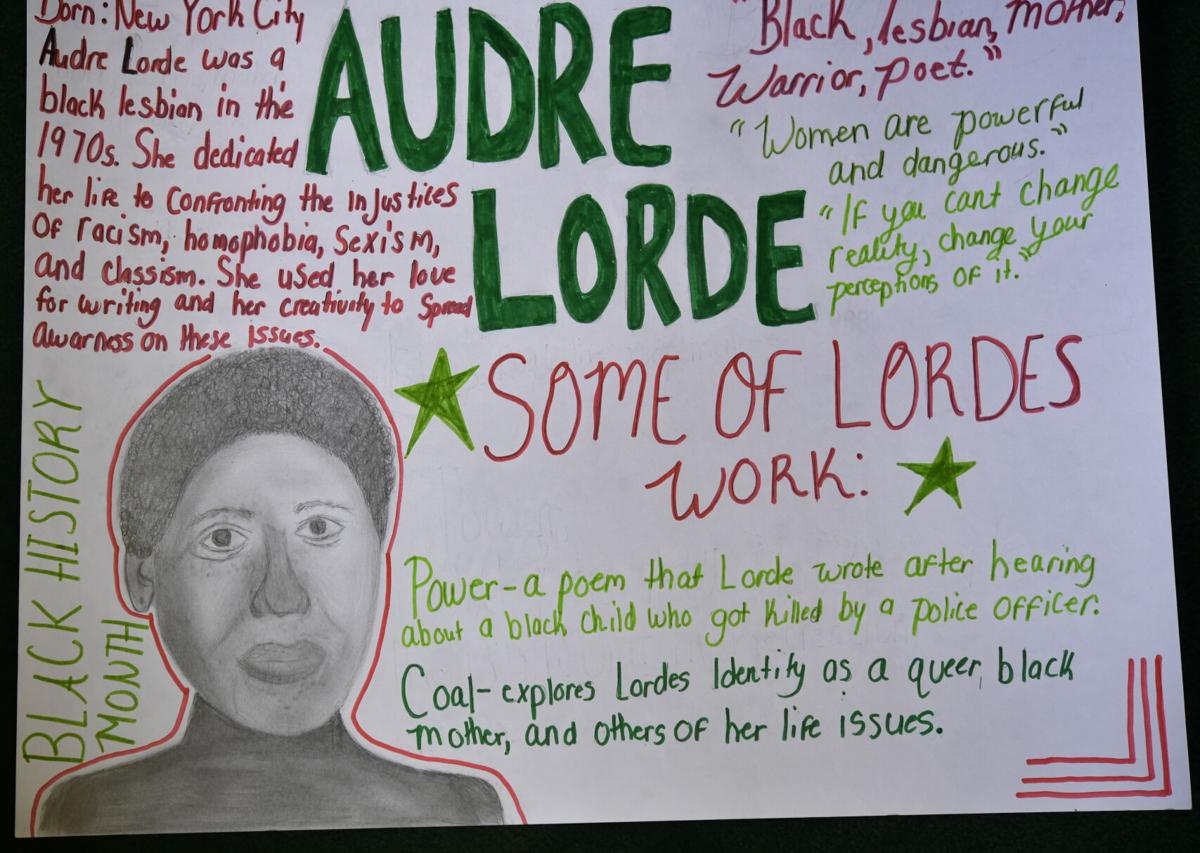 Born: New York City
Audre Lorde was a
black lesbian in the
1970s. She dedicated
her life to Confronting the InJustices
Of racism, homophobia, Sexism,
and classism. She used her love
for writing and her creativity to Spread
awarness on these issues.
AUDRE
LORDE
"Black, lesbian, mother,
Warrior, poet."
"Women are powerful
and dangerous."
"If you cant change
reality, change your
perceptions of it."
SOME OF LORDES
WORK:
Power-a poem that Lorde wrote after hearing
about a black child who got killed by a police officer.
Coal-explores Lordes Identity as a queer, black
mother, and others of her life issues.
BLACK HISTORY
MONTH